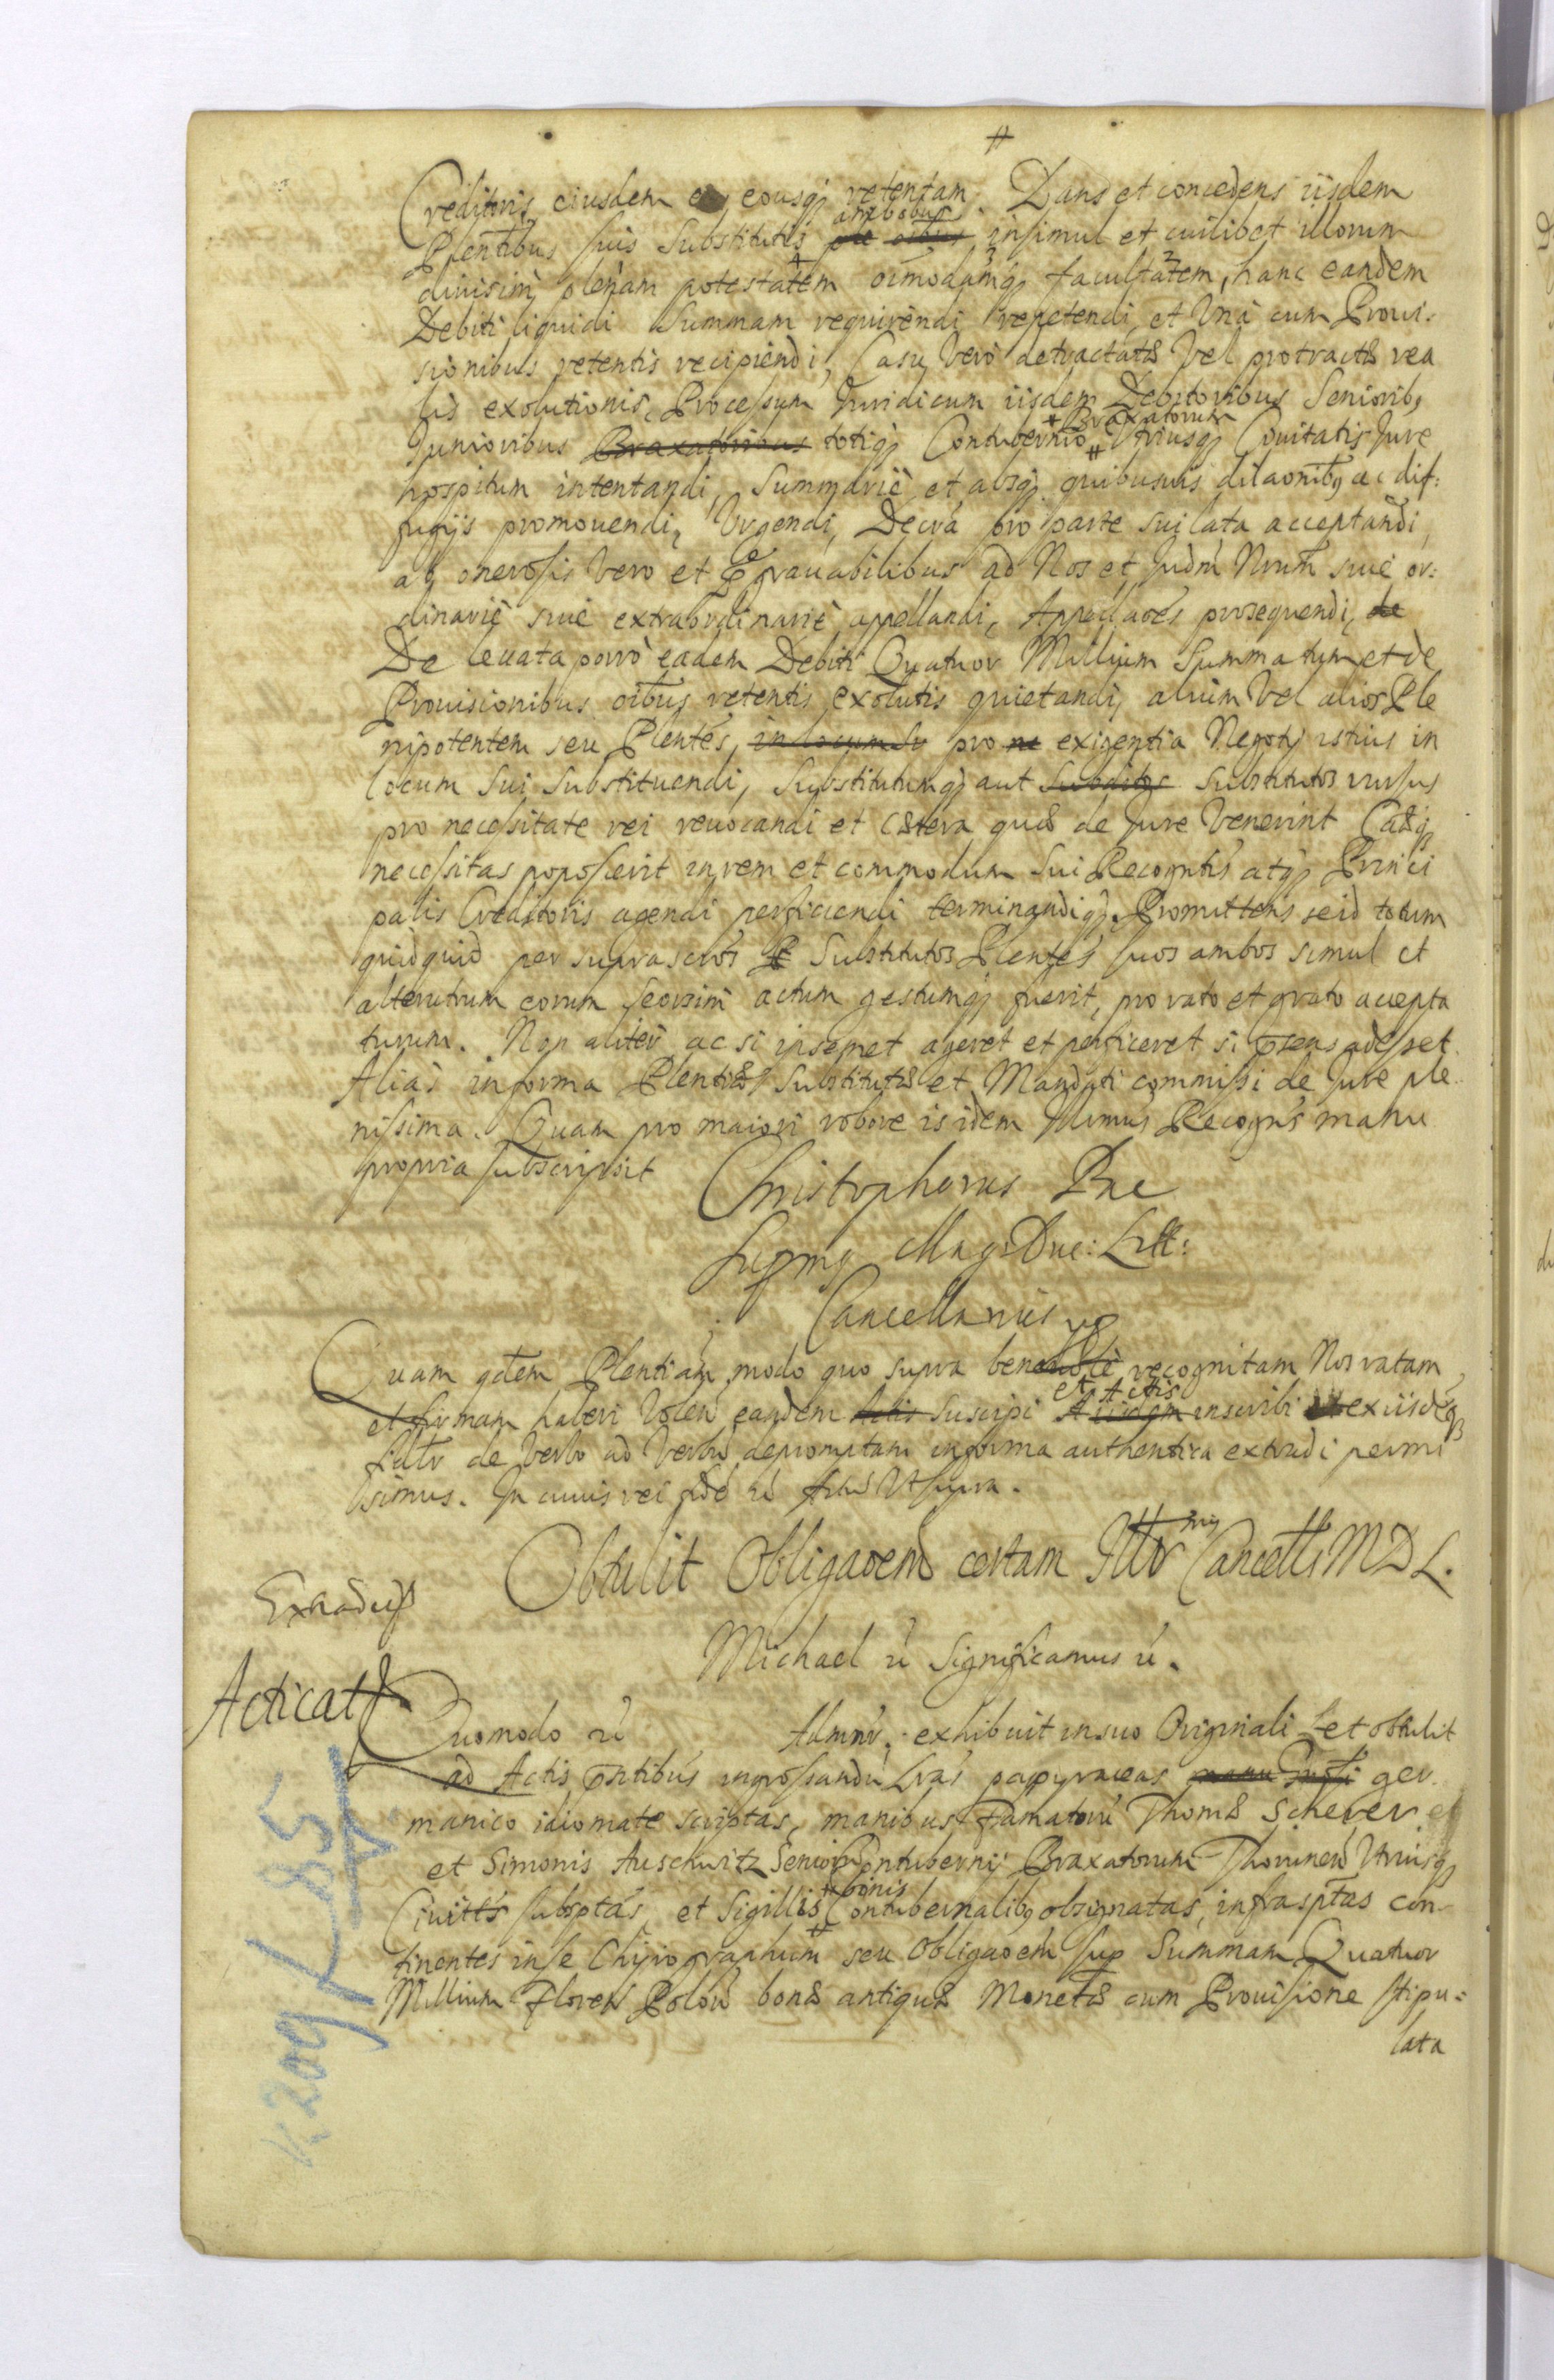 Creditoris eiusdem eousq; retentam. Dans et concedens iisdem
Plentibus suis Substitutis ambobus insimul et cuilibet illorum
diuisim, plenam potestatem oimodamq; facultatem, hanc eandem
Debiti liquidi Summam requirendi, repetendi, et Una cum Proui-
sionibus retentis recipiendi, Casu Vero detractatae Vel protractae rea
lis exolutionis, Processum Juridicum iisdem Debitoribus Seniorib9
Junioribus Braxatoribus totiq; Contubernio # Braxatorum Utriusq; Ciuitatis Jure
hospitum intentandi, Summarie et absq; quibusuis dilaonib9 ac dif:
fugijs promouendi, Urgendi, Decra pro parte sui lata acceptandi,
ab onerosis Vero et grauabilibus ad Nos et Judm Nrum siue or:
dinarie siue extraordinarie appellandi, Appellaoes prosequendi, de
De leuata porro eadem Debiti Quatuor Millium Summa tum et de
Prouisionibus oibus retentis exolutis quietandi, alium Vel alios Ple
nipotentem seu Plentes, in locum su pro ne exigentia Negotij istius in
locum Sui Substituendi, Substitutumq; aut Subditos Substitutos rursus
pro necessitate rei reuocandi et caetera quae de Jure Venerint Casq;
necessitas poposcerit in rem et commodum Sui Recogntis atq; Princi
palis Creditoris agendi perficiendi terminandiq;. Promittens se id totum
quidquid per suprascros Substitutos Plentes suos ambos simul et
alterutrum eorum seorsim actum gestumq; fuerit, pro rato et grato accepta
turum. Non aliter ac si ipsemet ageret et perficeret si praesens adesset.
Alias in forma Plentiae Substitutae et Mandati commissi de Jure ple
nissima. Quam pro maiori robore is idem Recogns manu
propria subscripsit Christophorus Pac
Supmg Mag: Duc: Litt:
Cancellarius
Quam qdem Plentiam modo quo supra bene recognitam, Nos ratam
et firmam haberi Volen eandem Actis Suscipi et Actis inscribi ex iisdeq;
fidlr de Verbo ad Verbu depromptam in forma authentica extradi permi
simus. In cuius rei fide rc Actu Ut supra.
Obtulit Obligaoem certam Illr mg Cancell M D L.
Extradu
Michael rc Significamus rc.
Acticat
Quomodo rc Admnr. exhibuit in suo Originali et obtulit
ad Actis pntibus ingrossandu Lras papyraceas manu ger
manico idiomate scriptas, manibus Famatoru Thomae Scherer et
et Simonis Auschwitz Senior Contubernij Braxatorum Thorunen Utriusq;
Ciuitts subsptas, et Sigillis # binis Contubernalib9 obsignatas, infrasptas con-
tinentes in se Chyrographum seu Obligaoem sup Summam Quatuor
Millium Floren Polon bonae antiquae Monetae cum Prouisione stipu=
lata
k 209/L 85